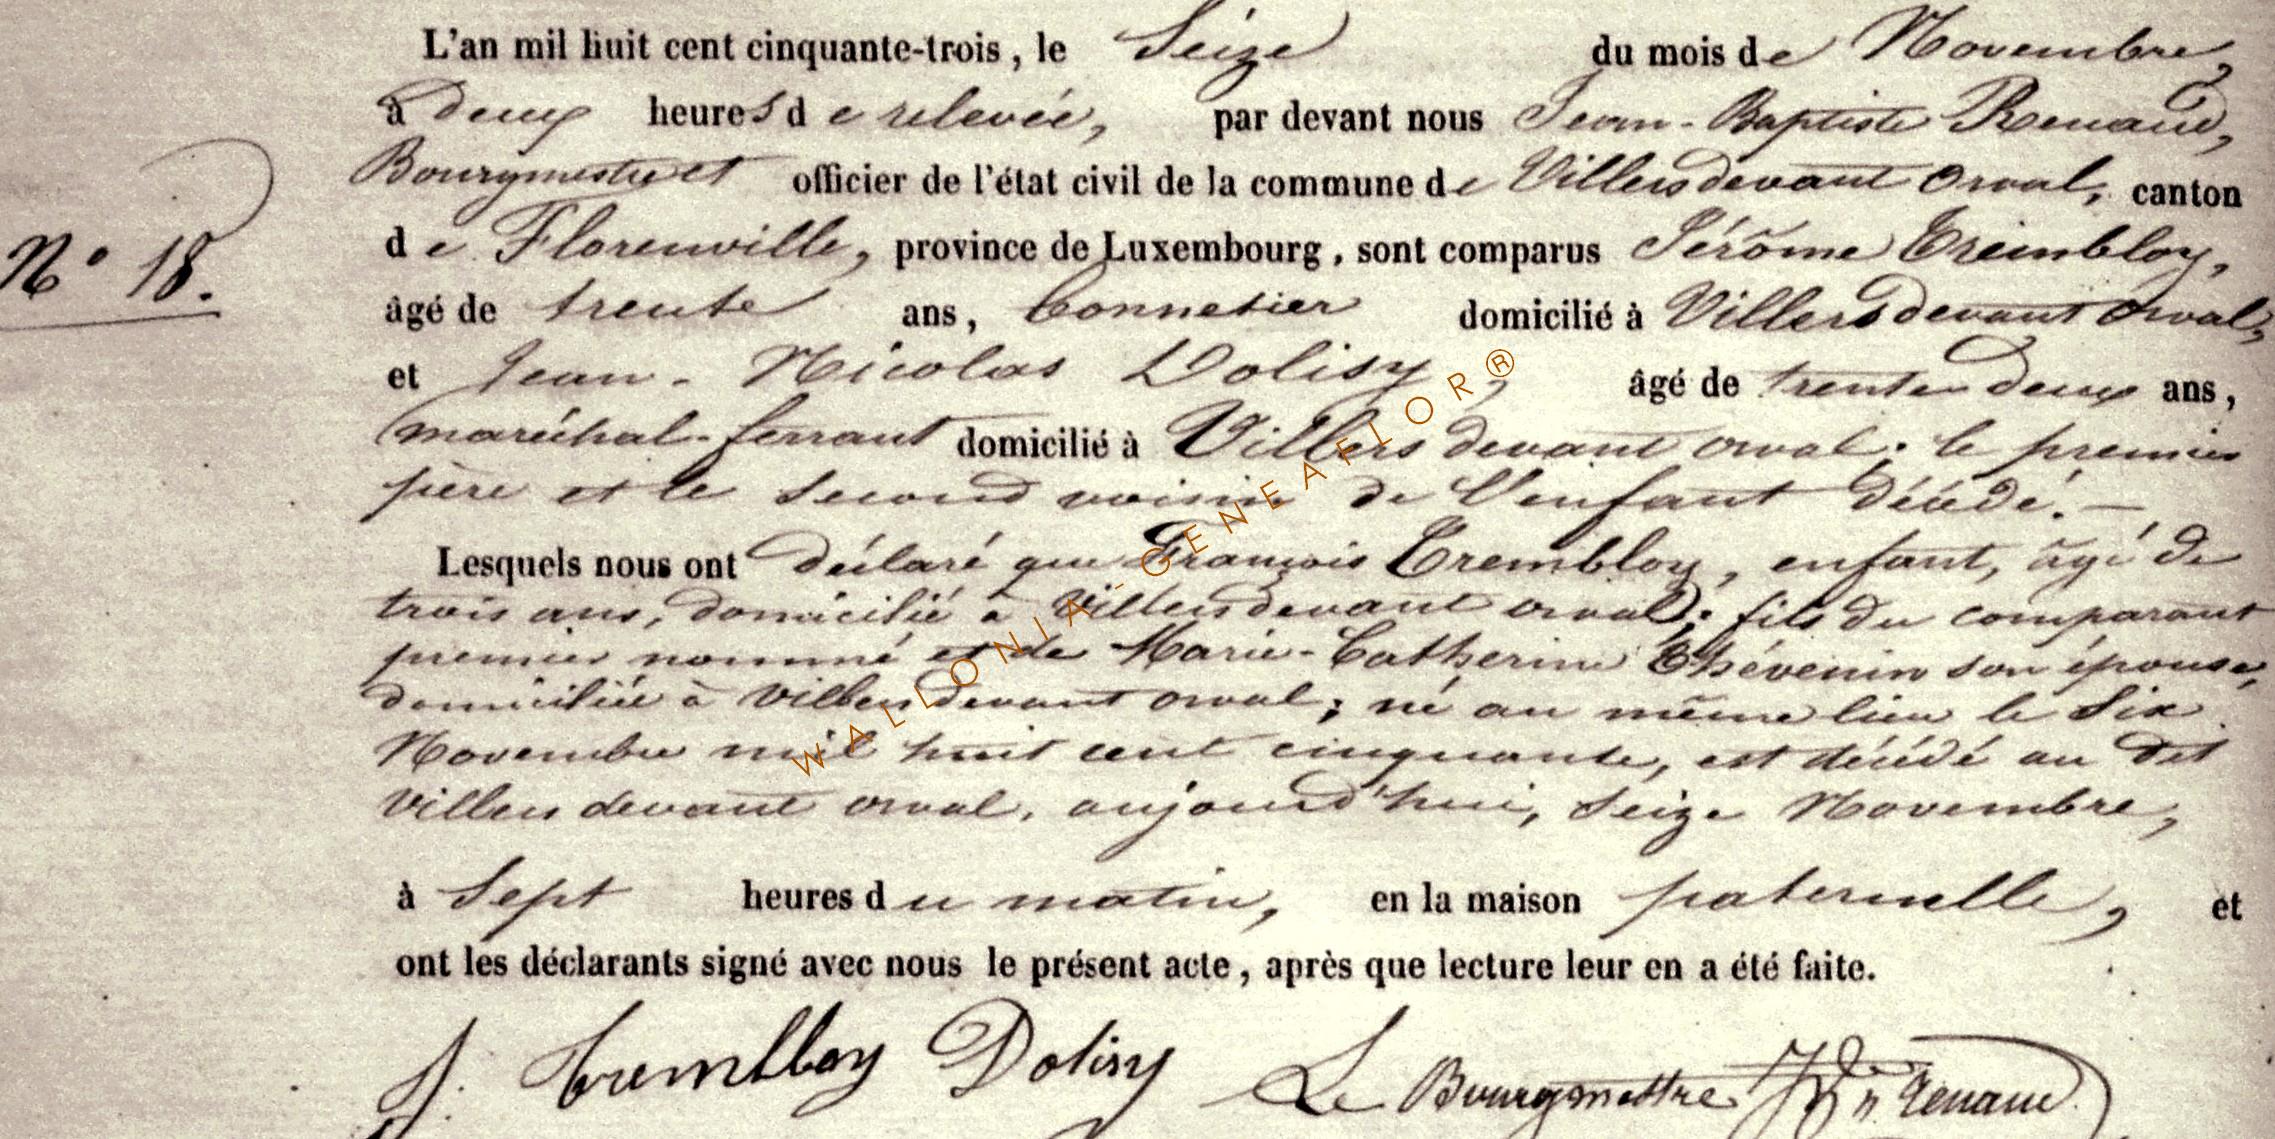 L'an mil huit cent cinquante-trois, le Seize du mois de Novembre,
à deux heures de relevée, par devant nous Jean-Baptiste Renaud,
Bourgmestre et officier de l'état civil de la commune de Villers devant orval, canton
de Florenville, province de Luxembourg, sont comparus Jérôme Trembloy,
N° 18.
âgé de trente ans, bonnetier domicilié à Villers devant orval,
et Jean-Nicolas Dolisy, âgé de trente deux ans,
maréchal-ferrant domicilié à Villers devant orval; le premier
père et le second voisin de l'enfant décédé. —
Lesquels nous ont déclaré que François Trembloy, enfant, âgé de
trois ans, domicilié à Villers devant orval; fils du comparant
premier nommé et de Marie-Catherine Thévenin son épouse,
domiciliée à Villers devant orval; né au même lieu le Six
Novembre mil huit cent cinquante, est décédé au dit
Villers devant orval, aujourd'hui, Seize Novembre,
à Sept heures du matin, en la maison paternelle, et
ont les déclarants signé avec nous le présent acte, après que lecture leur en a été faite.
J. Trembloy Dolisy Le Bourgmestre Renaud
WALLONIA-GENEAFLOR®